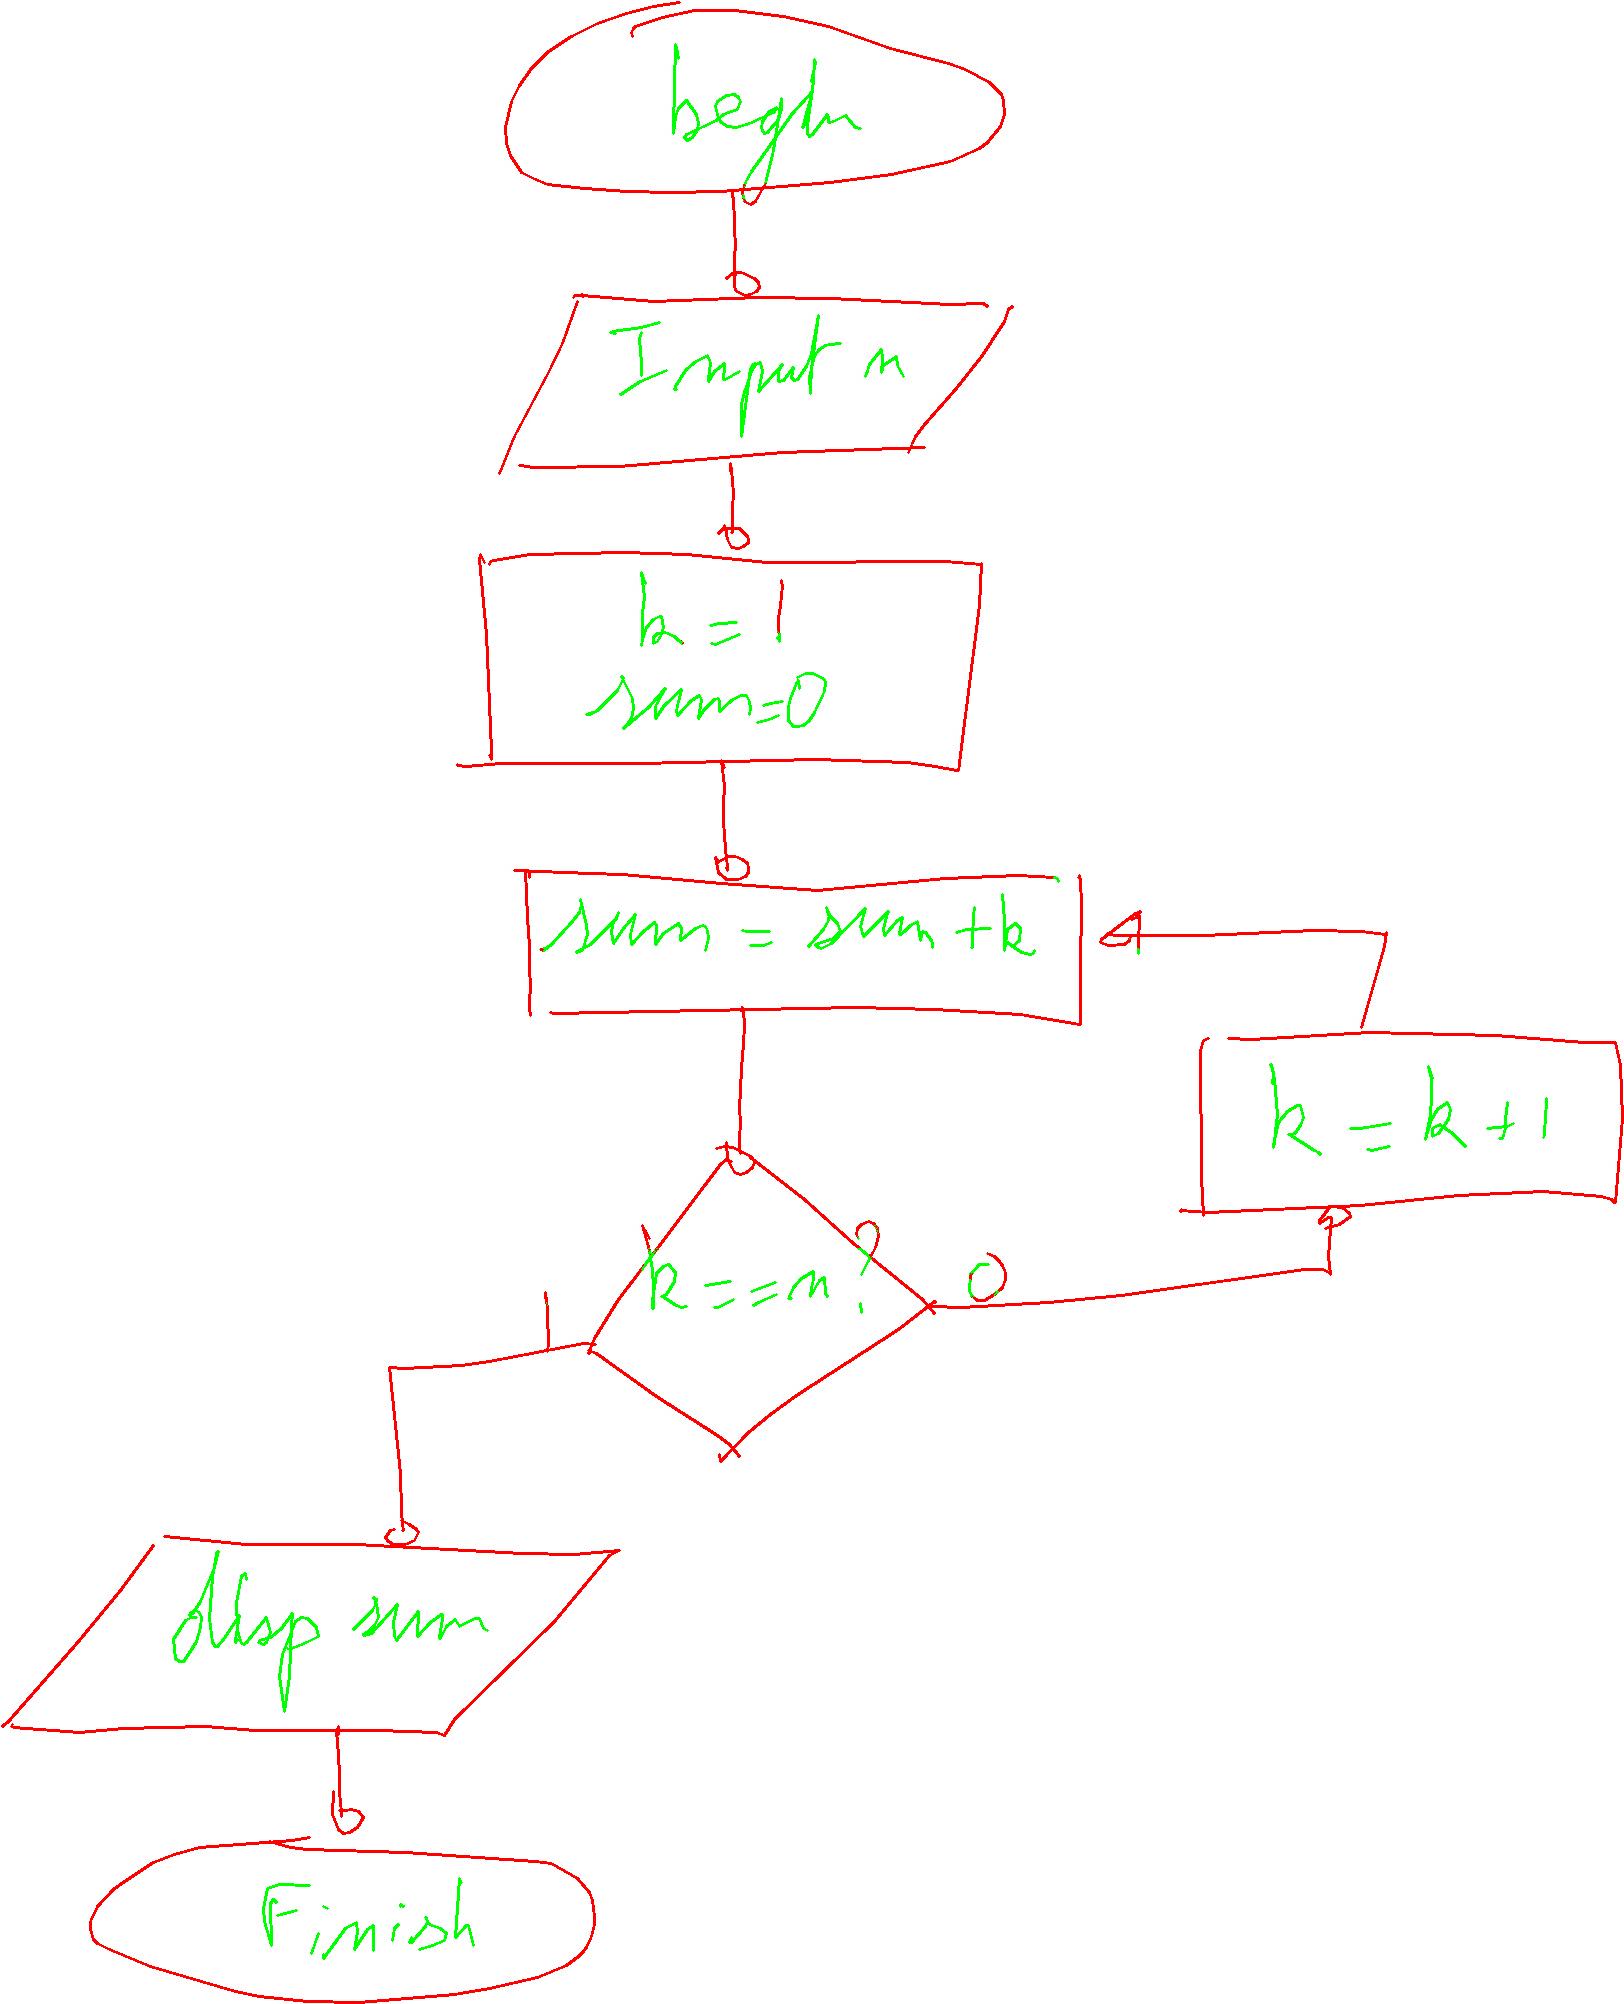 begin
Input n
k = 1
sum=0
sum = sum + k
k = k + 1
k == n ?
0
1
disp sum
Finish